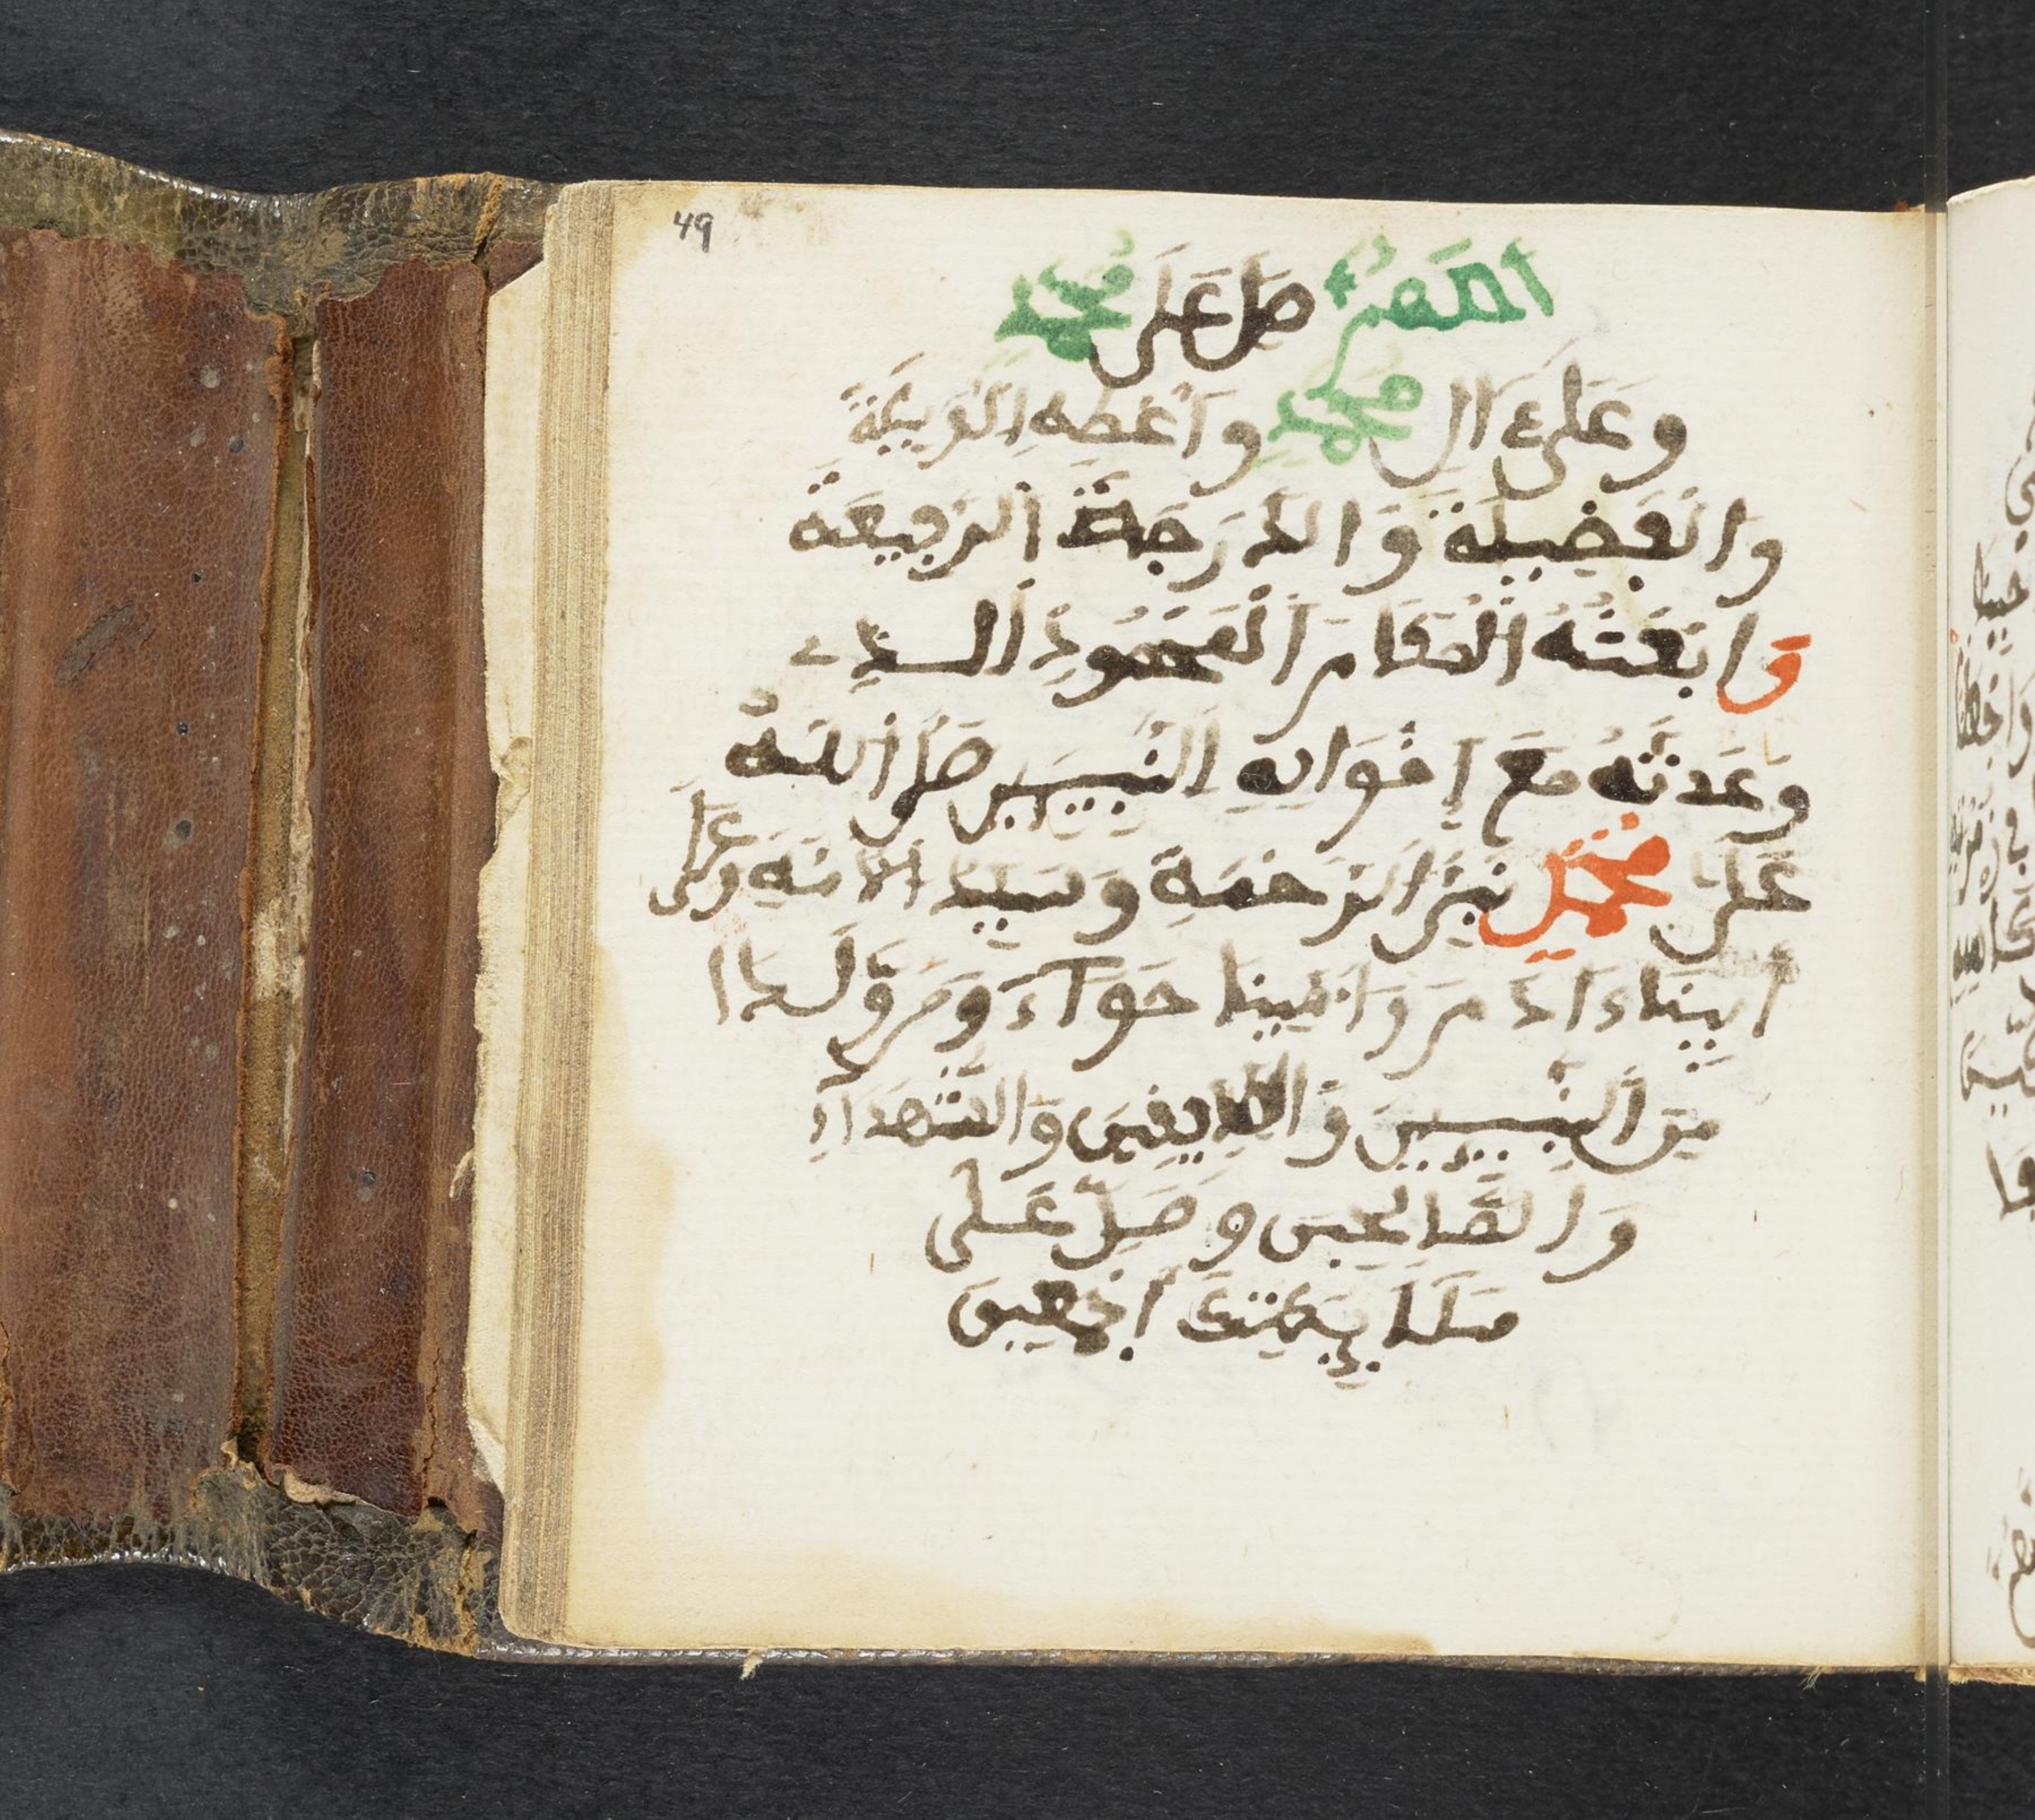 49
اللهم صل على محمد
وعلى ءال محمد وأعطه الوسيلة
والفضيلة والدرجة الرفيعة
وابعثه المقام المحمود الذي
وعدته مع إخوانه النبيين صل الله
على محمد نبي الرحمة وسيد الأمة وعلى
أبينا ءادم وأمنا حواء ومن ولدا
من النبيين والصديقين والشهداء
والصالحين وصل على
ملائكتك أجمعين